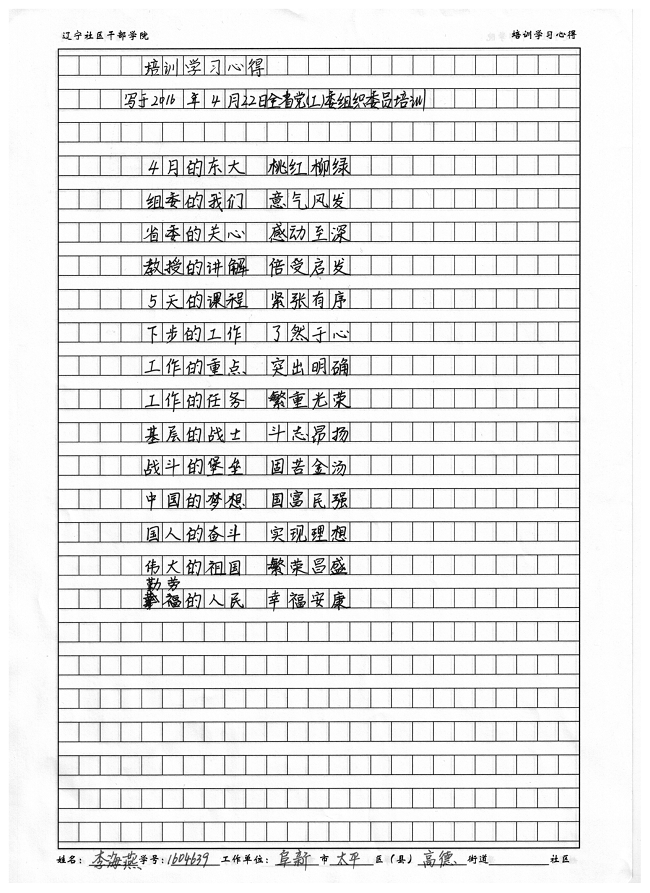 辽宁社区干部学院 培训学习心得
培训学习心得
写于2016年4月22日全省党(工)委组织委员培训
4月的东大 桃红柳绿
组委的我们 意气风发
省委的关心 感动至深
教授的讲解 倍受启发
5天的课程 紧张有序
下步的工作 了然于心
工作的重点 突出明确
工作的任务 繁重光荣
基层的战士 斗志昂扬
战斗的堡垒 固若金汤
中国的梦想 国富民强
国人的奋斗 实现理想
伟大的祖国 繁荣昌盛
勤劳
幸福的人民 幸福安康
姓名:李海燕 学号:1604639 工作单位:阜新市太平区(县)高德街道 社区